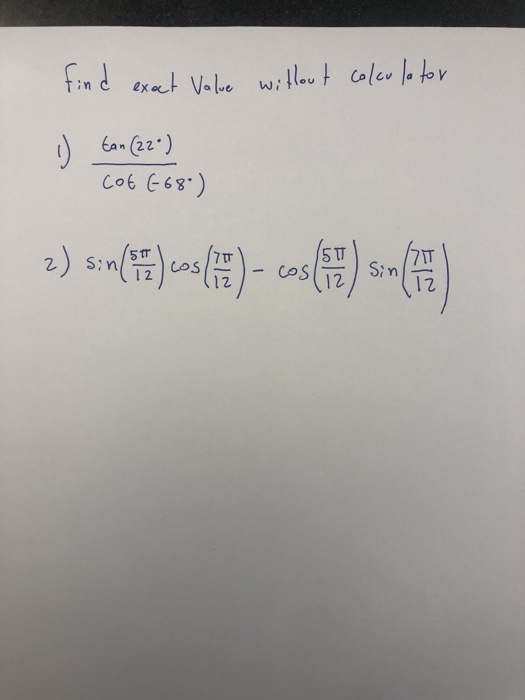 find exact Value without calculator
1) tan(22°)
cot (-68°)
2) sin(5π/12) cos(7π/12) - cos(5π/12) sin(7π/12)